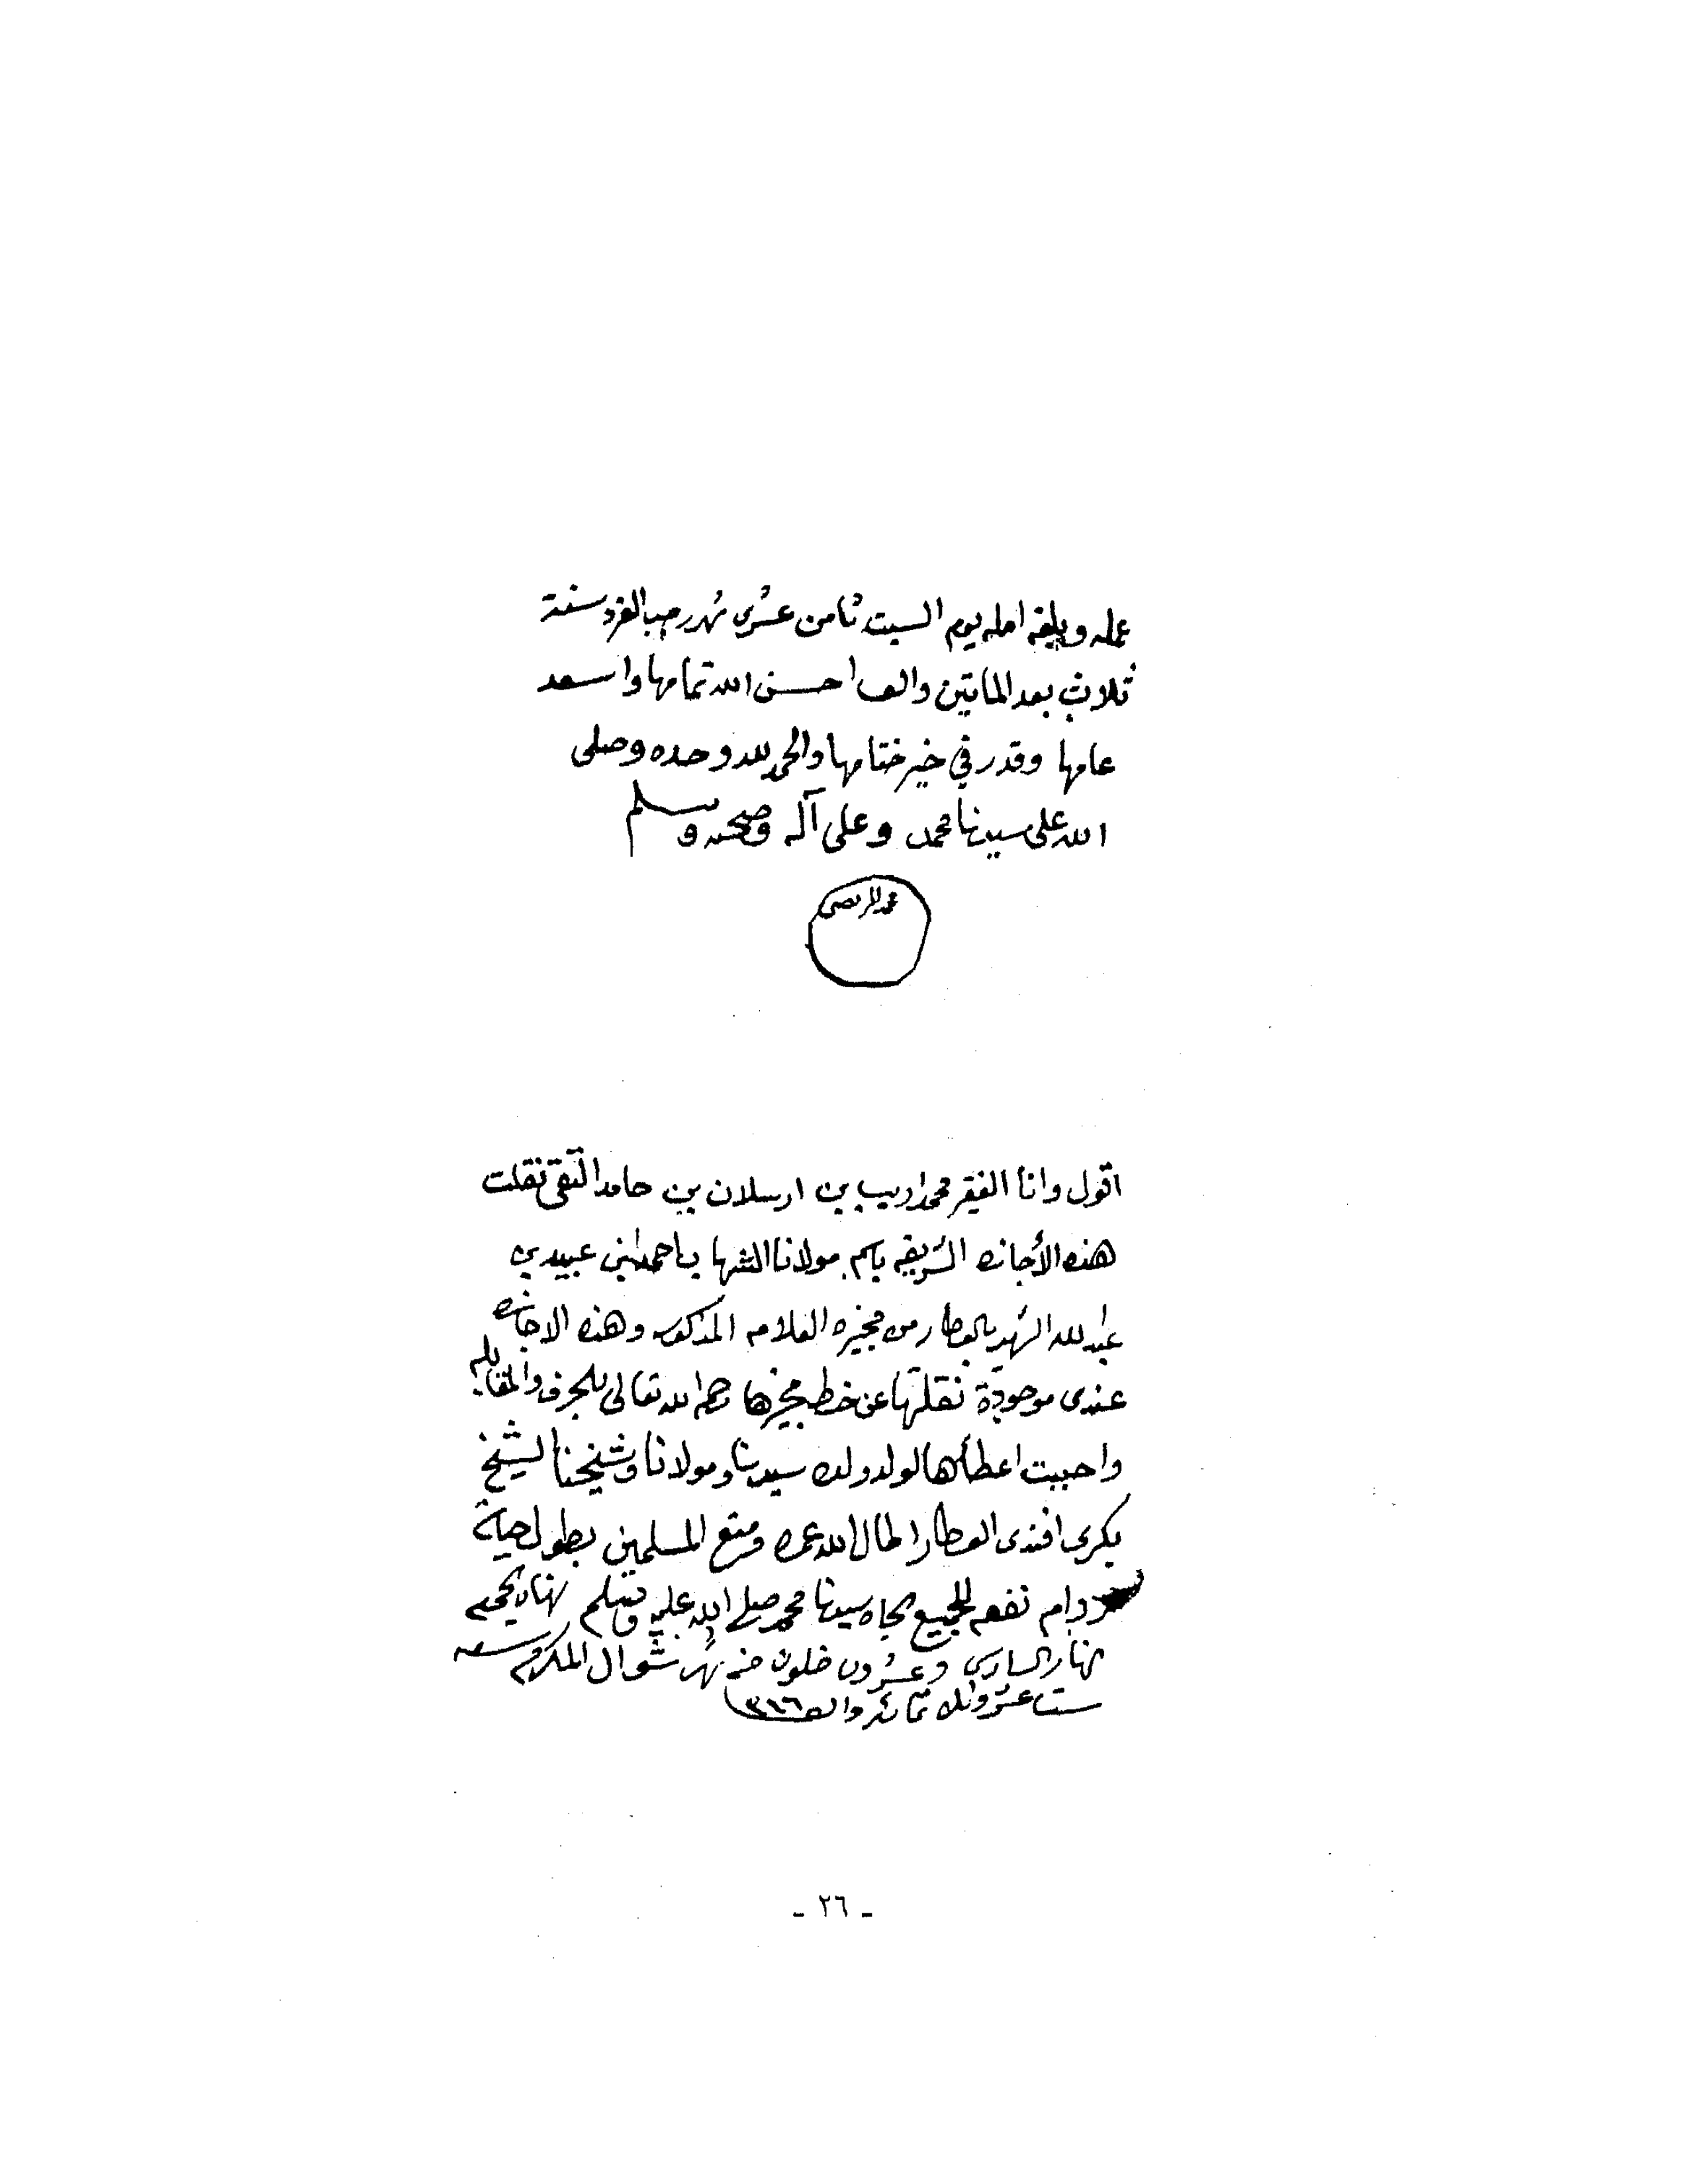 عمله وبلغه امله يوم السبت ثامن عشري شهر رجب الفرد سنة
ثلاث بعد المايتين والف احسن الله تمامها واسعد
عامها وقدر في خير ختامها والحمد لله وحده وصلى
الله على سيدنا محمد وعلى آله وصحبه وسلم
محمد المرتضى
اقول وانا الفقير محمد اديب بن ارسلان بن حامد التقي نقلت
هذه الأجازه الشريفه باسم مولانا الشهاب احمد بن عبيد بن
عبد لله الشهير بالعطار من مجيزه العلامه المذكور وهذه الاجازه
عندى موجودة نقلتها عن خط مجيزها رحمه الله تعالى بالحرف والمقابله
واحببت اعطائها لولد ولده سيدنا ومولانا وشيخنا الشيخ
بكرى افندى العطار اطال الله عمره ومتع المسلمين بطول حياته
ودام نفعه للجميع بجاه سيدنا محمد صلى الله عليه وسلم
نهار السادس وعشرون خلون من شهر شوال المكرم سنه
ست عشر وثلاثمائة والف ١٣١٦
- ٢٦ -